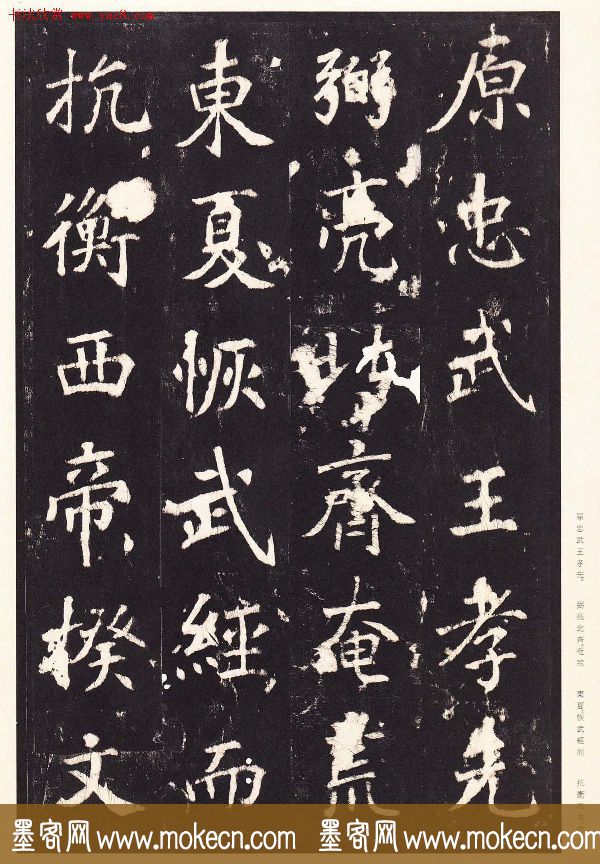 书法欣赏 www.yac8.com
原忠武王孝先
弼亮 齊奄荒
東夏恢武經而
抗衡西帝揆文
原忠武王孝先、
弼亮北齊、奄荒
東夏、恢武經而
抗衡
墨客网 www.mokecn.com 墨客网 www.mokecn.com